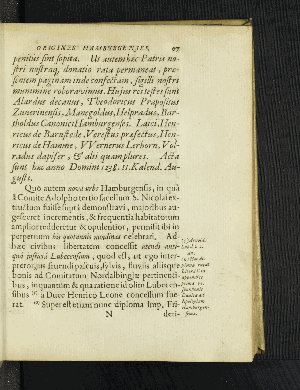 ORIGINES HAMBURGENSES, 97
penitus sint sopita. Ut autem hæc Patris no-
stri nostraq, donatio rata permaneat, præ-
sentem paginam inde confectam, sigilli nostri
munimine roboravimus. Hujus rei testes sunt
Alardus decanus, Theodoricus Præpositus
Zuverinensis. Manegoldus, Helpradus, Bar-
tholdus Canonici Hamburgenses. Laici, Hen-
ricus de Barnstede, Verestus præfectus, Hen-
ricus de Hamme, VVernerus Lerhorn, Vol-
radus dapifer, & alii quamplures. Acta
sunt hæc anno Domini 1238. 11. Kalend. Au-
gusti.
Quò autem nova urbs Hamburgensis, in quâ
à Comite Adolpho tertio sacellum S. Nicolai ex-
tructum fuisse suprà demonstravi, majoribus au-
gesceret incrementis, & frequentia habitatorum
ampliar redderetur & opulentior, permisit ibi in
perpetuum bis quotannis nundinas celebrari, Ad-
hæc civibus libertatem concessit utendi anti-
quâ justitiâ Lubecensium, quod est, ut ego inter-
pretor, jus fruendi pascuis, sylvis, fluviis aliisque
bonis ad Comitatum
bus, inquantum & quâ ratione id olim Lubecen-
sibus à Duce Henrico Leone concessum fue-
rat. Superest etiamnunc diploma Imp. Fri-
N deri-